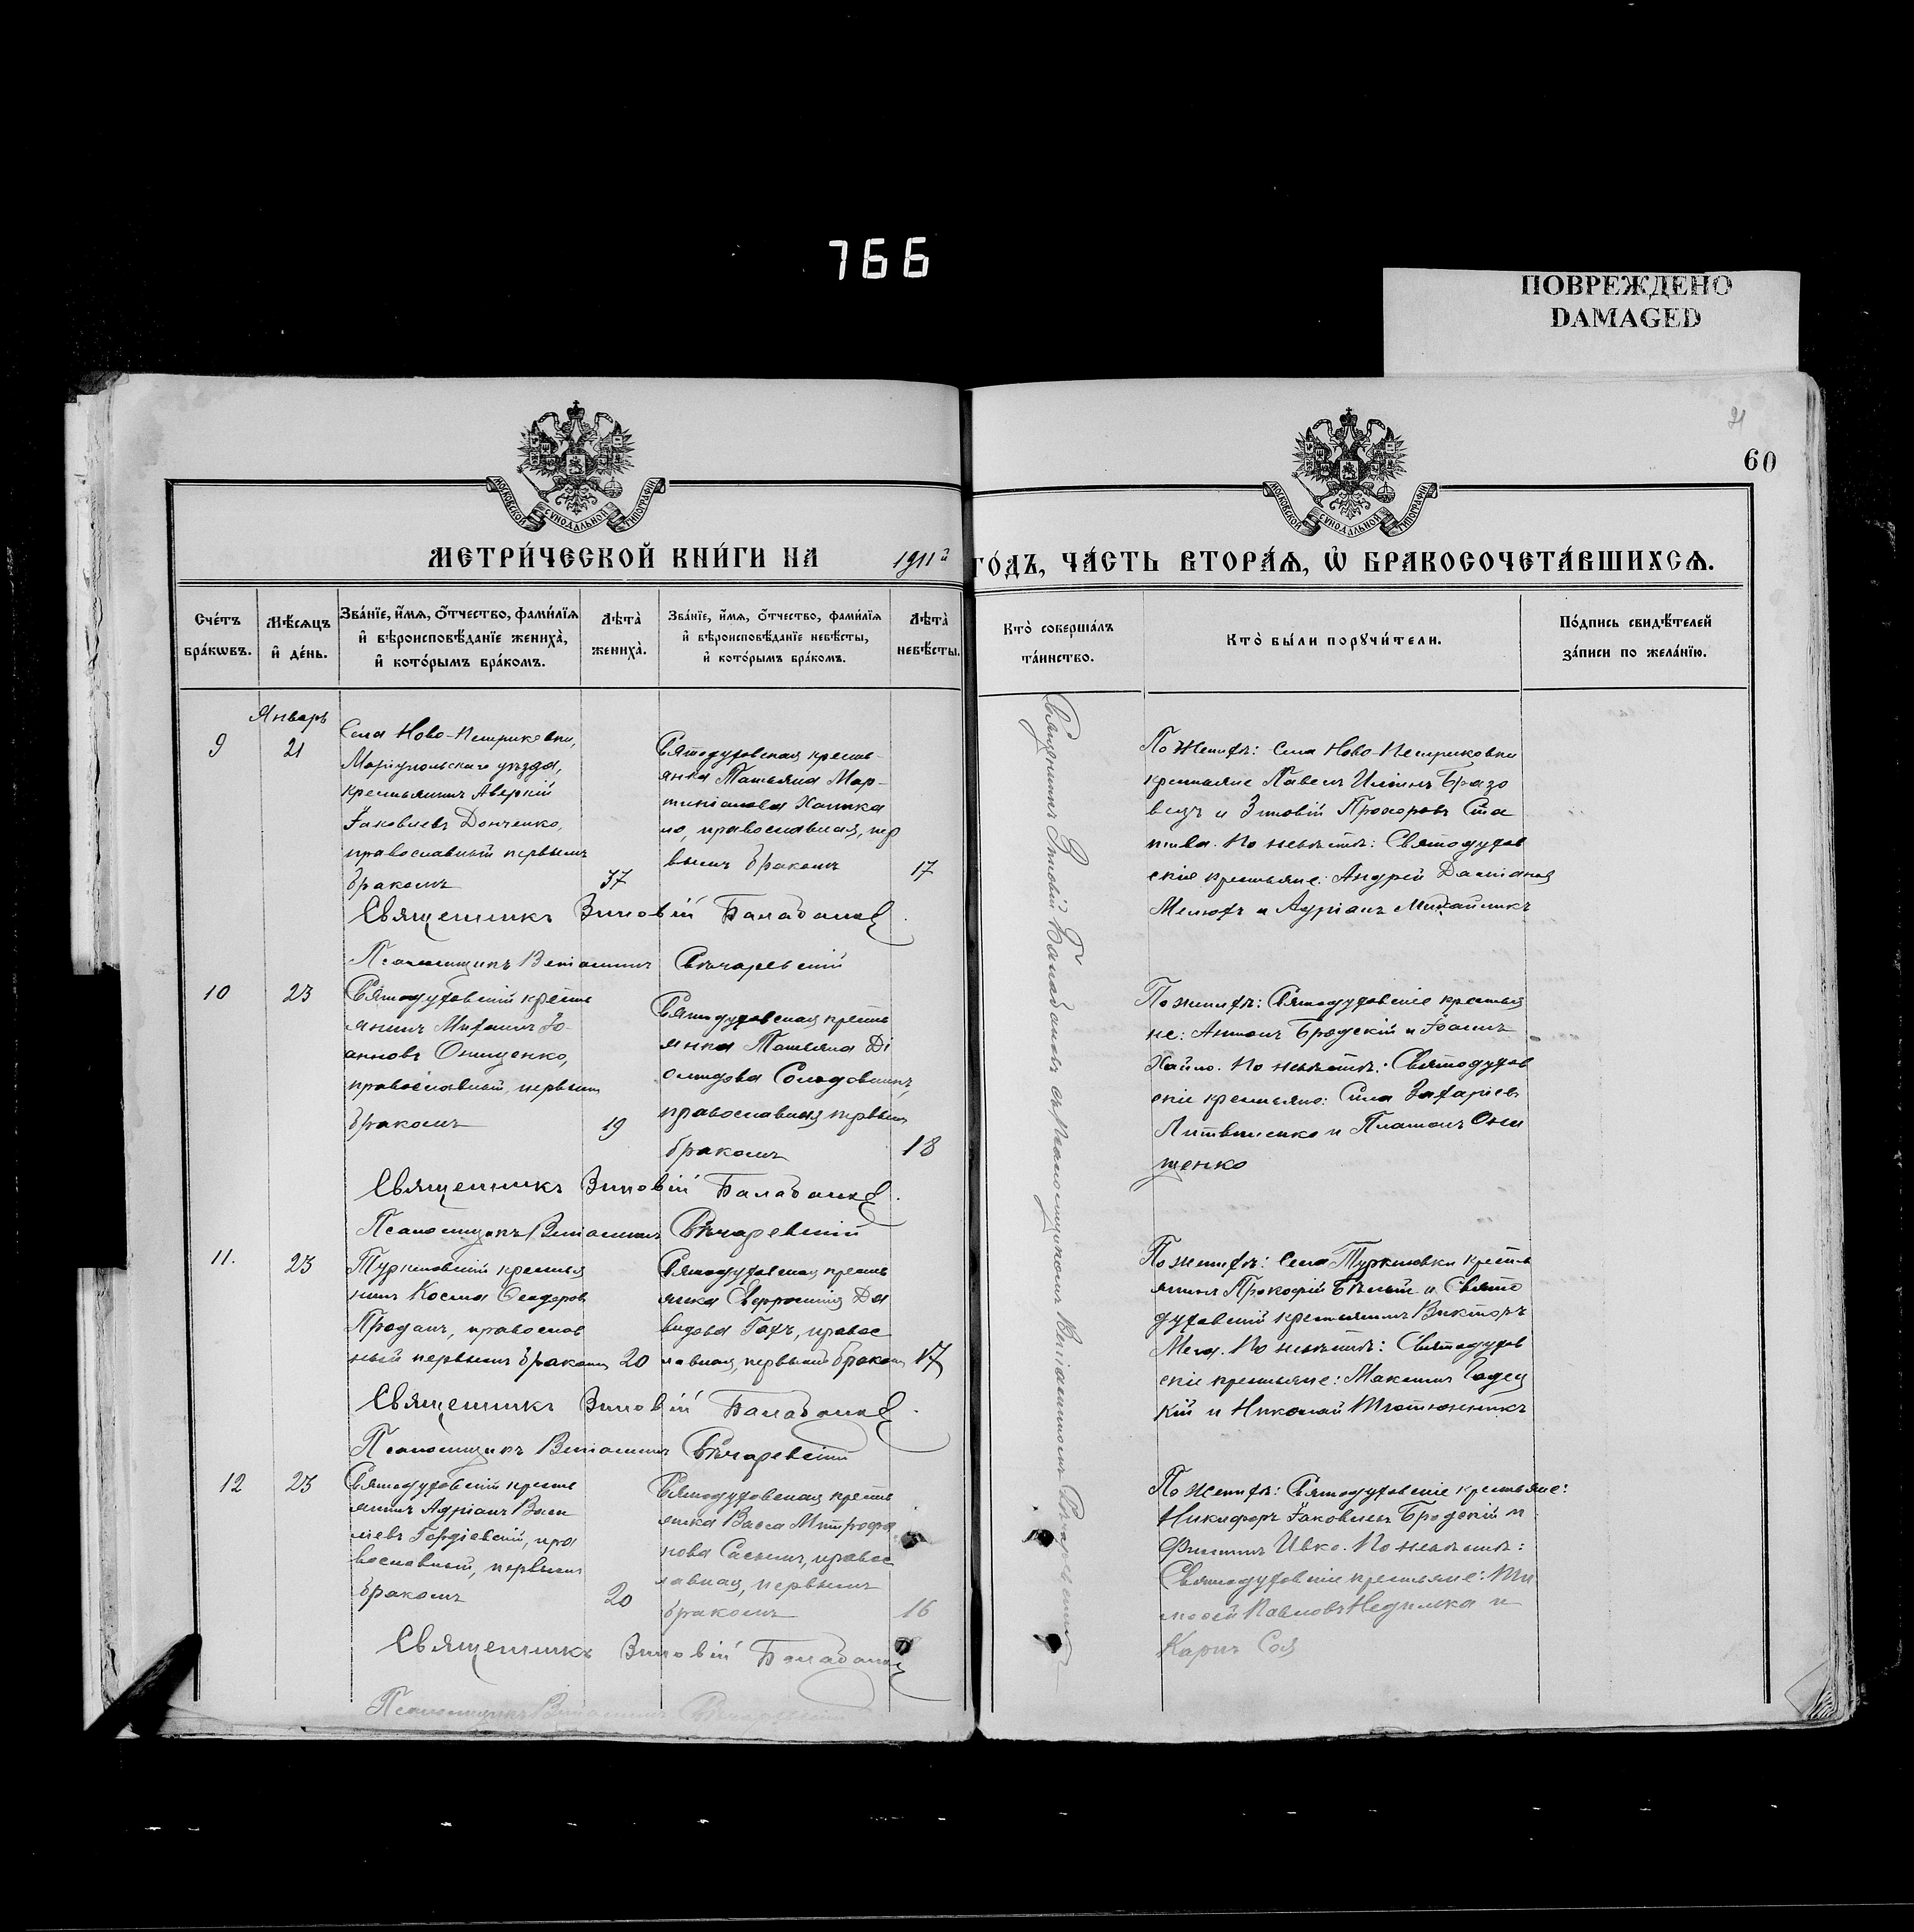 766
ПОВРЕЖДЕНО
DAMAGED
21
60
МОСКОВСКОЙ СѴНОДАЛЬНОЙ ТИПОГРАФІИ
МОСКОВСКОЙ СѴНОДАЛЬНОЙ ТИПОГРАФІИ
МЕТРИ́ЧЕСКОЙ КНИ́ГИ НА 1911й ГО́ДЪ, ЧА́СТЬ ВТОРА́Ѧ, Ѡ҆ БРАКОСОЧЕТА́ВШИХСѦ.
Сче́тъ
бра́кѡвъ.
Мѣ́сяцъ
и҆ де́нь.
Зва́нїе, и҆́мѧ, ѻ҆́тчество, фами́лїѧ
и҆ вѣроисповѣ́данїе жениха̀,
и҆ кото́рымъ бра́комъ.
Лѣта̀
жениха̀.
Зва́нїе, и҆́мѧ, ѻ҆́тчество, фами́лїѧ
и҆ вѣроисповѣ́данїе невѣ́сты,
и҆ кото́рымъ бра́комъ.
Лѣта̀
невѣ́сты.
Кто̀ соверша́лъ
та́инство.
Кто̀ бы́ли порꙋчи́тели.
По́дпись свидѣ́телей
за́писи по жела́нїю.
Январь
9
21
Села Ново-Петриковки,
Маріупольскаго уѣзда,
крестьянинъ Аверкій
Іаковлевъ Донченко,
православный первымъ
бракомъ
37
Святодуховская кресть-
янка Татьяна Мар-
тиніанова Хатка
ло, православная, пер
вымъ бракомъ
17
По женихѣ: села Ново-Петриковки
крестьяне Павелъ Ильинъ
и Зиновій Прохоровъ
По невѣстѣ: Святодухов
скіе крестьяне: Андрей Даміановъ
и Адріанъ Михайликъ
Священникъ Зиновій Балабановъ
Псаломщикъ Веніаминъ Овчаревскій
10
23
Святодуховскій кресть
янинъ Михаилъ Іо-
анновъ Онищенко,
православный, первымъ
бракомъ
19
Святодуховская кресть
янка Татьяна Ді
омидова
православная первымъ
бракомъ
18
По женихѣ: Святодуховскіе крестья
не: Антонъ Бродскій и Іоаннъ
Хайло. По невѣстѣ: Святодухов
скіе крестьяне: Сила Захаріевъ
Литвиненко и Платонъ Они
щенко
Священникъ Зиновій Балабановъ
Псаломщикъ Веніаминъ Овчаревскій
11.
23
Туркеновскій крестья
нинъ Косма Ѳеодоровъ
Проданъ, православ
ный первымъ бракомъ 20
Святодуховская кресть
янка Евфросинія Да
видова Гахъ, правос
лавная, первымъ бракомъ 17
По женихѣ: села Туркеновки кресть
янинъ Прокофій Бѣлый и Свято
духовскій крестьянинъ Викторъ
По невѣстѣ: Святодухов
скіе крестьяне: Максимъ
кій и Николай Тютюнникъ
Священникъ Зиновій Балабановъ
Псаломщикъ Веніаминъ Овчаревскій
12
23
Святодуховскій кресть
янинъ Адріанъ Васи
льевъ Гордіевскій, пра
вославный, первымъ
бракомъ
20
Святодуховская кресть
янка Васса Митрофа
нова правос
лавная, первымъ
бракомъ
16
По женихѣ: Святодуховскіе крестьяне:
Никифоръ Іаковлевъ Бродскій и
Филиппъ Ивко. По невѣстѣ:
Святодуховскіе крестьяне: Ти
моѳей Павловъ Недилька и
Карпъ
Священникъ Зиновій Балабановъ
Псаломщикъ Веніаминъ Овчаревскій
Священникъ Зиновій Балабановъ съ псаломщикомъ Веніаминомъ Овчаревскимъ